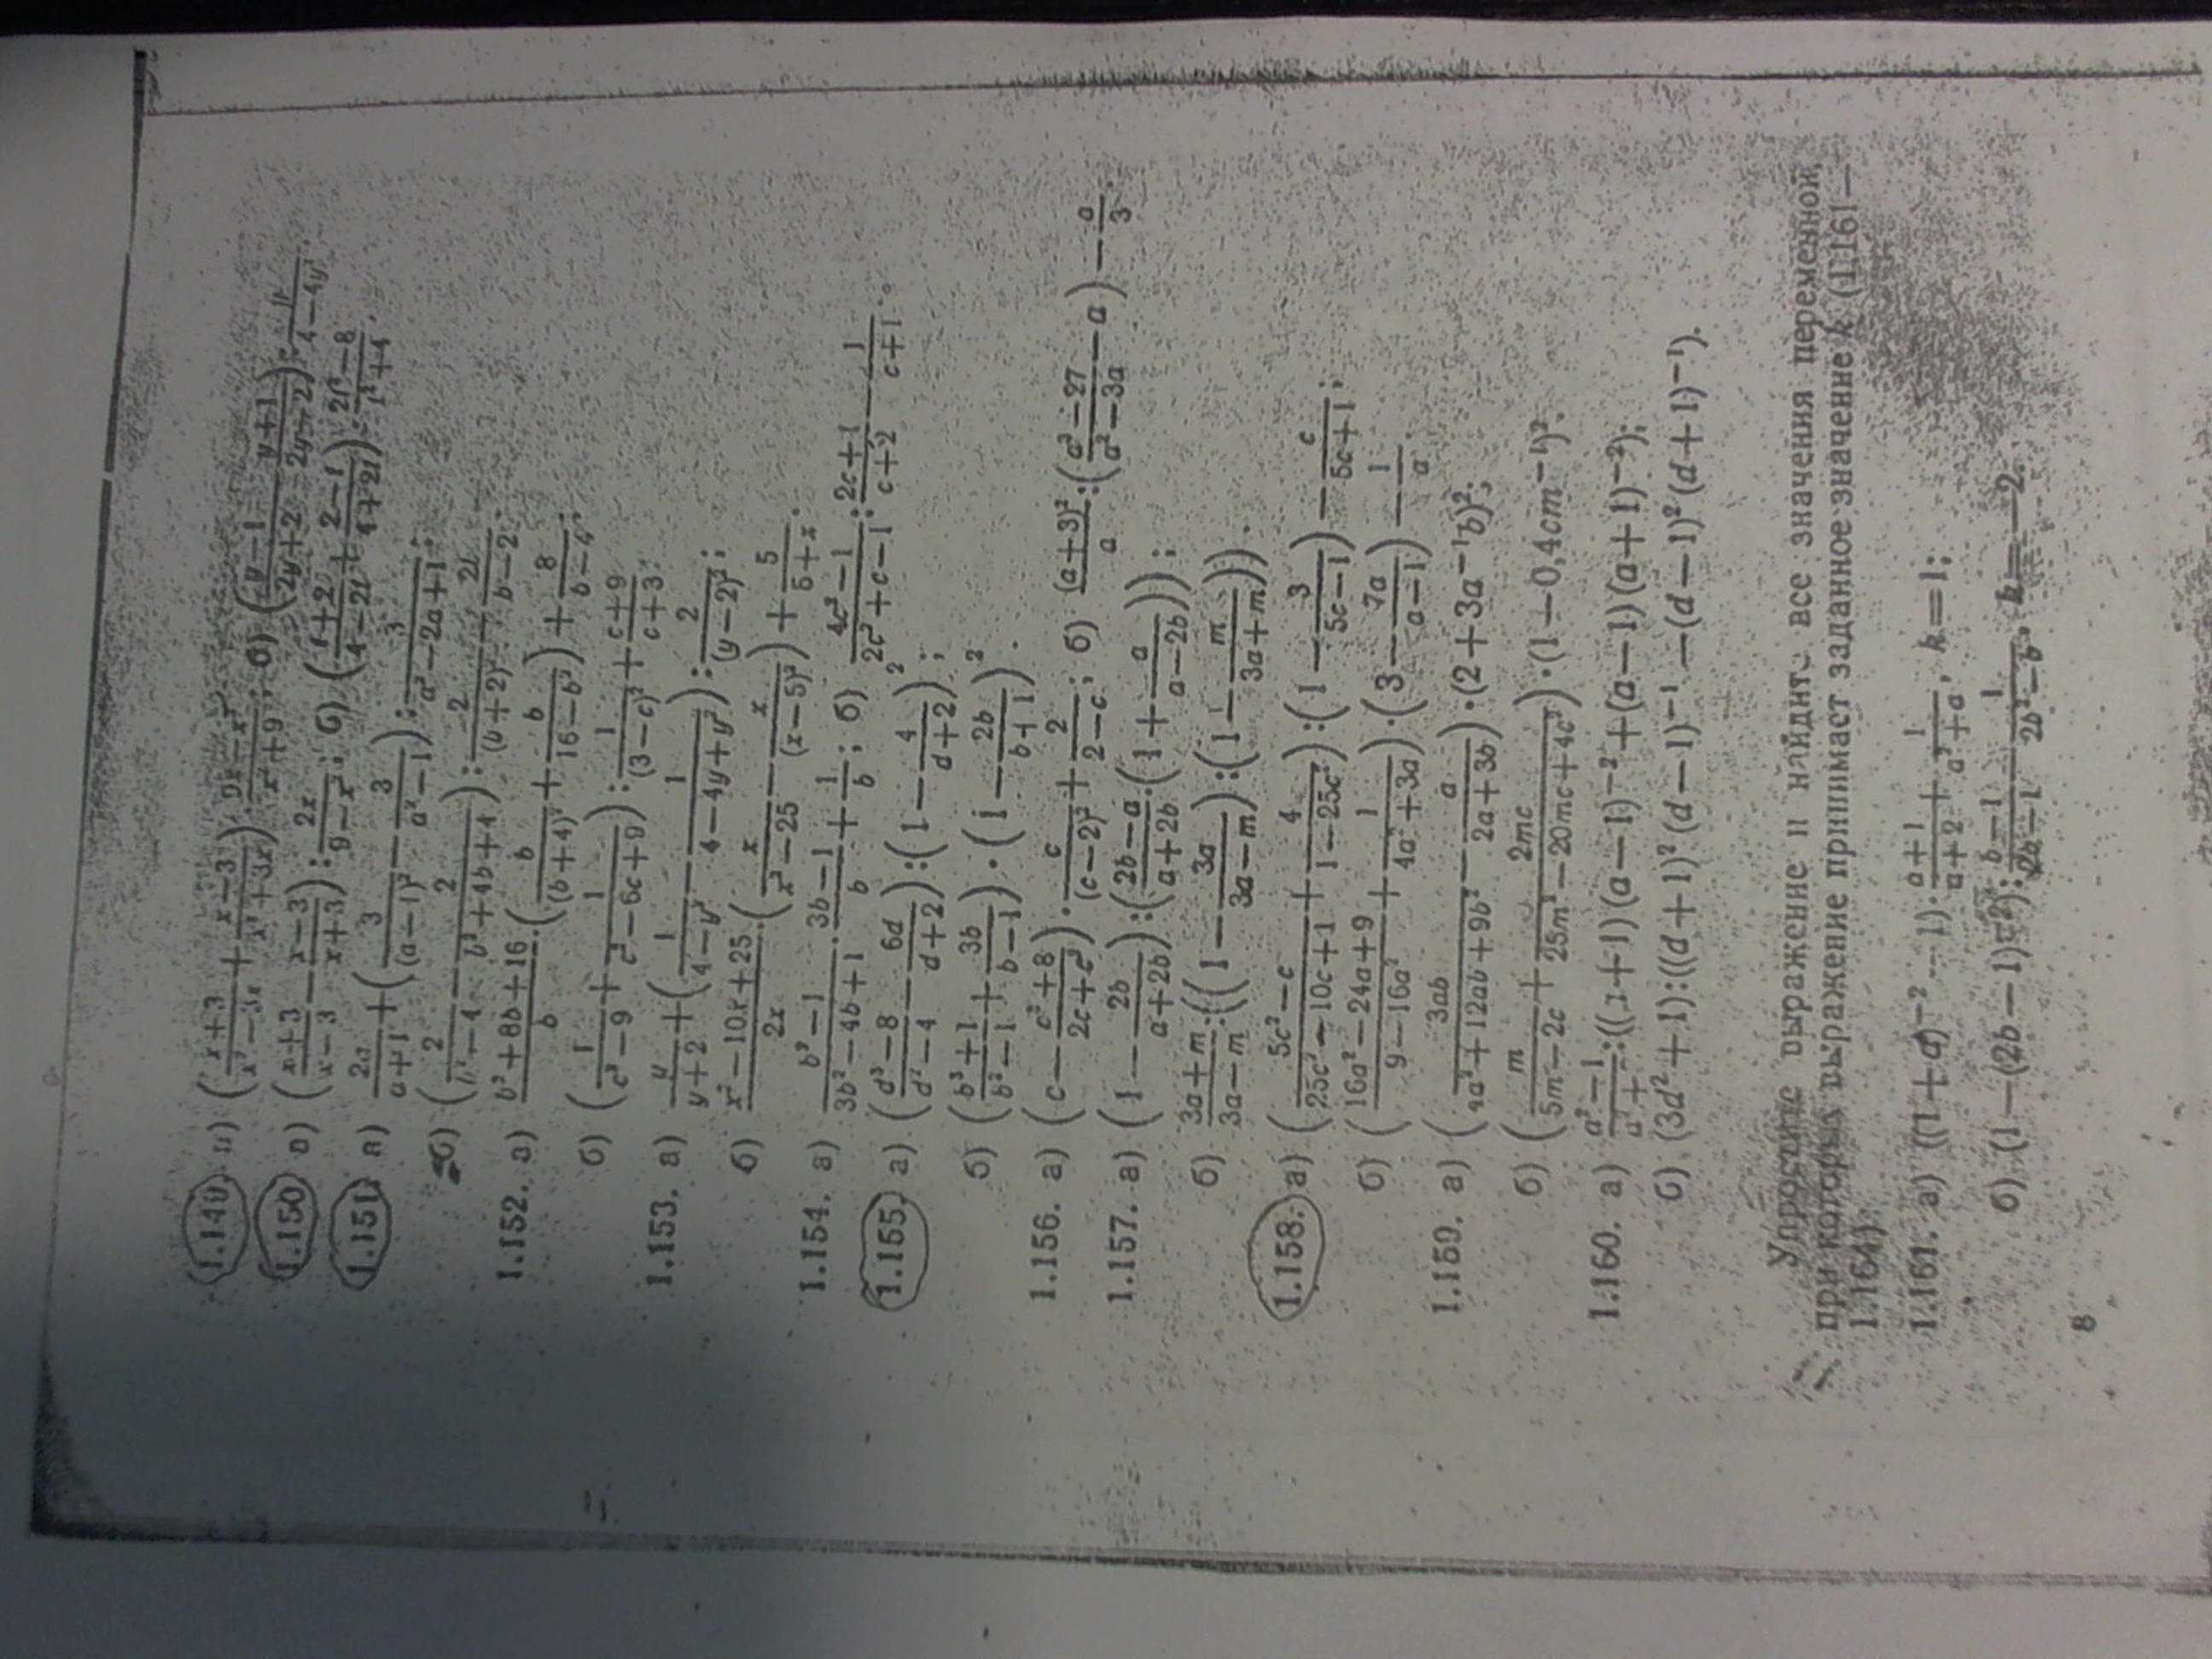 1.149. а) ((x+3)/(x²−3x) + (x−3)/(x²+3x)) · (9x−x³)/(x²+9); б) ((y−1)/(2y+2) − (y+1)/(2y−2))
1.150. а) ((x+3)/(x−3) − (x−3)/(x+3)) : 2x/(9−x²); б) ((t+2)/(4−2t) + (2−t)/(4+2t))
1.151. а) 2a/(a+1) + (3/(a−1)² − 3/(a²−1)) : 3/(a²−2a+1);
б) (2/(b²−4) − 2/(b²+4b+4)) : 2/(b+2)²
1.152. а) (b²+8b+16)/b · (b/(b+4)² + b/(16−b²)) + 8/(b−4);
б) (1/(c²−9) + 1/(c²−6c+9)) : 1/(3−c)² + (c+9)/(c+3);
1.153. а) y/(y+2) + (1/(4−y²) − 1/(4−4y+y²)) : 2/(y−2)²;
б) (x²−10x+25)/2x · (x/(x²−25) − x/(x−5)²) + 5/(5+x).
1.154. а) (b²−1)/(3b²−4b+1) · (3b−1)/b + 1/b; б) (4c²−1)/(2c²+c−1) : (2c+1)/(c+2) − 1/(c+1).
1.155. а) ((d³−8)/(d²−4) − 6d/(d+2)) : (1 − 4/(d+2))²;
б) ((b³+1)/(b²−1) + 3b/(b−1)) · (1 − 2b/(b+1))².
1.156. а) (c − (c³+8)/(2c+c²)) · c/(c−2)² + 2/(2−c); б) (a+3)²/a : ((a³−27)/(a²−3a) − a) − a/3.
1.157. а) (1 − 2b/(a+2b)) : ((2b−a)/(a+2b) · (1 + a/(a−2b)));
б) (3a+m)/(3a−m) : ((1 − 3a/(3a−m)) : (1 − m/(3a+m))).
1.158. а) ((5c²−c)/(25c²−10c+1) + 4/(1−25c²)) : (1 − 3/(5c−1)) − c/(5c+1);
б) ((16a²−24a+9)/(9−16a²) + 1/(4a²+3a)) · (3 − 7a/(a−1)) − 1/a.
1.159. а) (3ab/(4a²+12ab+9b²) − a/(2a+3b)) · (2+3a⁻¹b)²;
б) (m/(5m−2c) + 2mc/(25m²−20mc+4c²)) · (1−0,4cm⁻¹)².
1.160. а) : ((a+1)(a−1)⁻² + (a−1)(a+1)⁻²);
б) (3d²+1) : ((d+1)²(d−1)⁻¹ − (d−1)²(d+1)⁻¹).
Упростите выражение и найдите все значения переменной,
при которых выражение принимает заданное значение k (1.161—
1.164).
1.161. а) ((1+a)⁻² − 1) · (a+1)/(a+2) + 1/(a²+a), k=1;
б) (1−(2b−1)⁻²) : (b−1)/(2b−1) − 1/(2b²−b), k=−2.
8